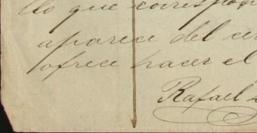 llo que correspo
aparece del ce
ofrece hacer el
Rafael